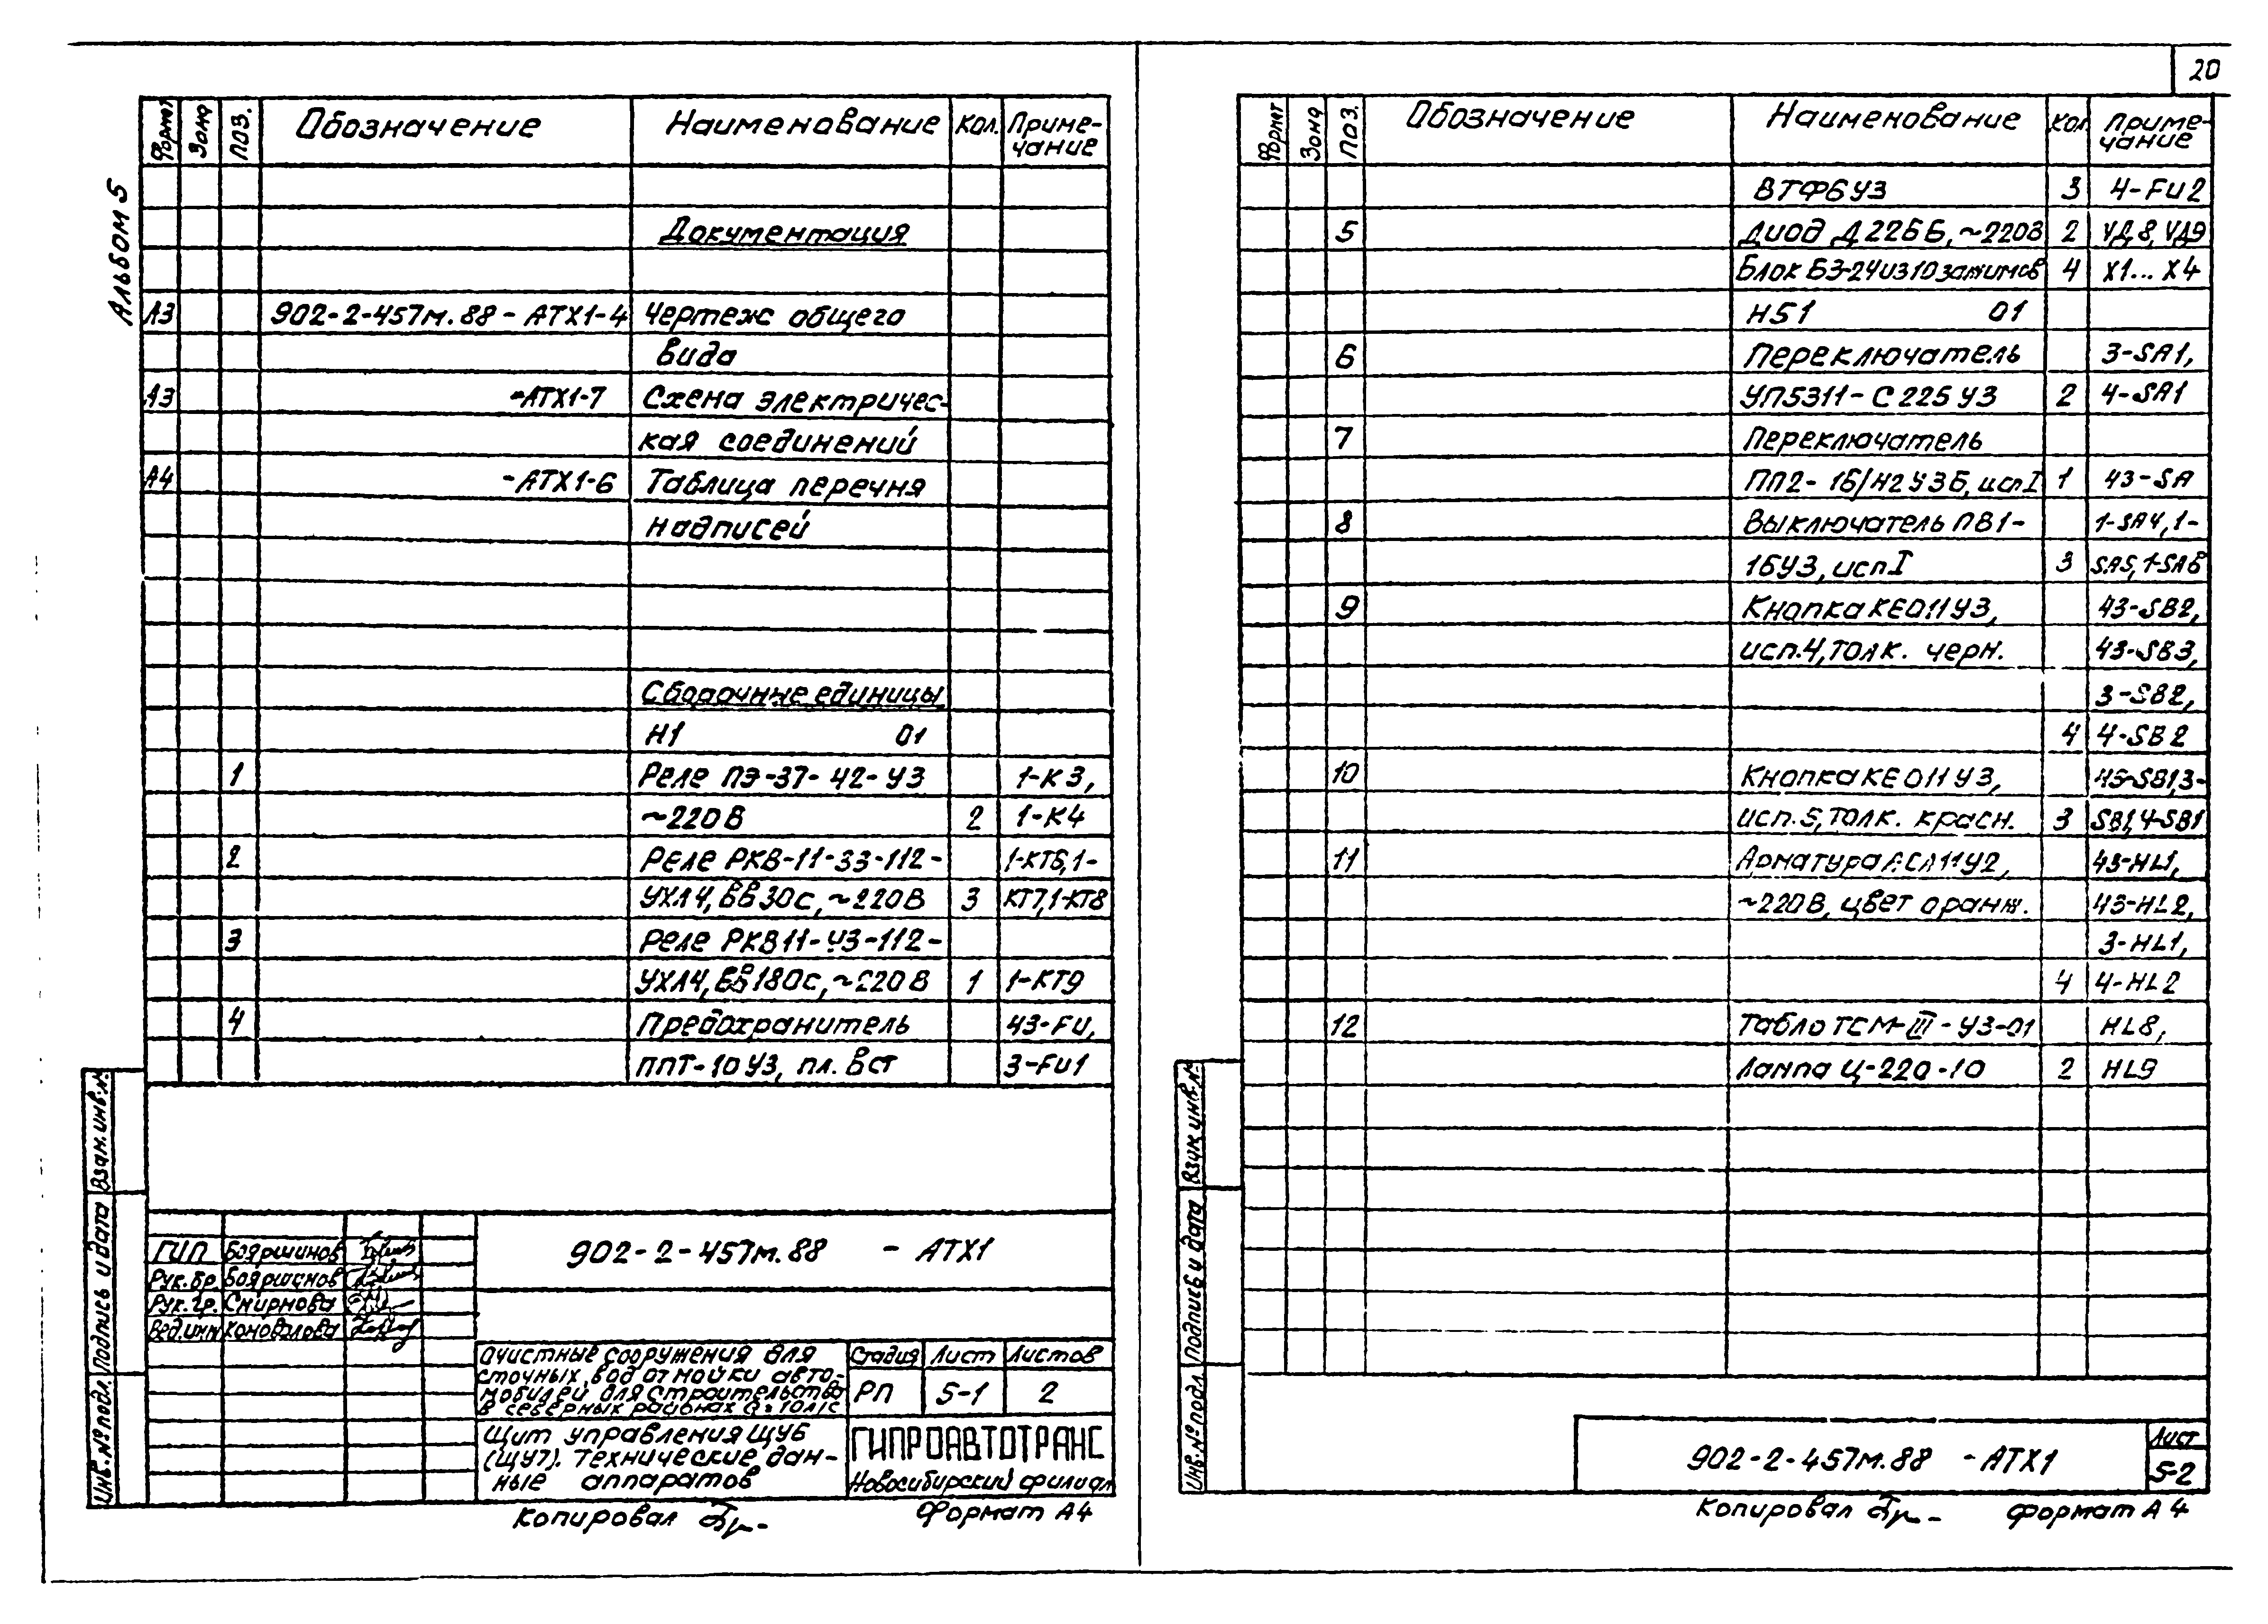 20
Альбом 5
Формат Зона Поз. Обозначение Наименование Кол. Приме-
чание
Документация
А3 902-2-457м.88 - АТХ1-4 Чертеж общего
вида
А3 -АТХ1-7 Схема электричес-
кая соединений
А4 -АТХ1-6 Таблица перечня
надписей
Сборочные единицы
Н1 01
1 Реле ПЭ-37-42-У3 1-К3,
~220В 2 1-К4
2 Реле РКВ-11-33-112- 1-КТ6,1-
УХЛ4, ВВ30с, ~220В 3 КТ7,1-КТ8
3 Реле РКВ11-43-112-
УХЛ4, ВВ180с, ~220В 1 1-КТ9
4 Предохранитель 43-FU,
ППТ-10У3, пл. Вст 3-FU1
Взам.инв.№
Подпись и дата
Инв.№ подл.
ГИП Бояршинов
Рук.бр. Бояршинов
Рук.гр. Смирнова
Вед.инж Коновалова
902-2-457м.88 - АТХ1
Очистные сооружения для
сточных вод от мойки авто-
мобилей для строительства
в северных районах Q=10л/с
Стадия Лист Листов
РП 5-1 2
Щит управления ЩУ6
(ЩУ7). Технические дан-
ные аппаратов
ГИПРОАВТОТРАНС
Новосибирский филиал
Копировал
Формат А4
Формат Зона Поз. Обозначение Наименование Кол. Приме-
чание
ВТФ6У3 3 4-FU2
5 Диод Д226Б, ~220В 2 VД8, VД9
Блок БЗ-24 из 10 зажимов 4 Х1...Х4
Н51 01
6 Переключатель 3-SA1,
УП5311-С225У3 2 4-SA1
7 Переключатель
ПП2-16/Н2У3Б, исп I 1 43-SA
8 Выключатель ПВ1- 1-SA4,1-
16У3, исп I 3 SA5,1-SA6
9 Кнопка КЕ011У3, 43-SB2,
исп.4, толк. черн. 43-SB3,
3-SB2,
4 4-SB2
10 Кнопка КЕ011У3, 43-SB1,3-
исп.5, толк. красн. 3 SB1,4-SB1
11 Арматура АСЛ11У2, 43-HL1,
~220В, цвет оранж. 43-HL2,
3-HL1,
4 4-HL2
12 Табло ТСМ-III-У3-01 HL8,
Лампа Ц-220-10 2 HL9
Взам.инв.№
Подпись и дата
Инв.№ подл.
902-2-457м.88 - АТХ1
Лист
5-2
Копировал
Формат А4